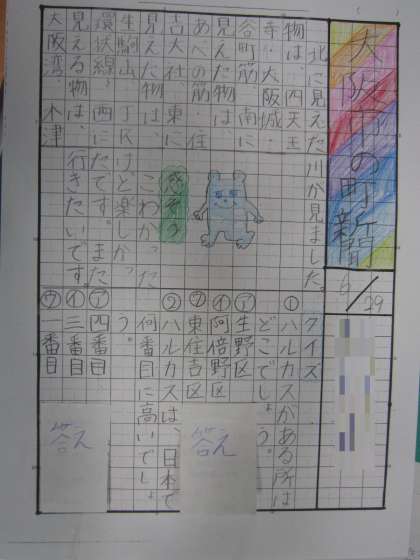 大阪市の町新聞
北に見えた
物は、四天王
寺、大阪城、
谷町筋、南に
見えた物は、
あべの筋、住
吉大社、東に
見えた物は、
生駒山、JR
環状線、西に
見える物は、
大阪湾、木津
川が見ました。
感そう
こわかった
けど楽しかっ
たです。また
行きたいです。
クイズ
①ハルカスがある所は
どこでしょう。
㋐生野区
㋑阿倍野区
㋒東住吉区
答え
②ハルカスは、日本で
何番目に高いでしょ
う。
㋐四番目
㋑三番目
㋒一番目
答え